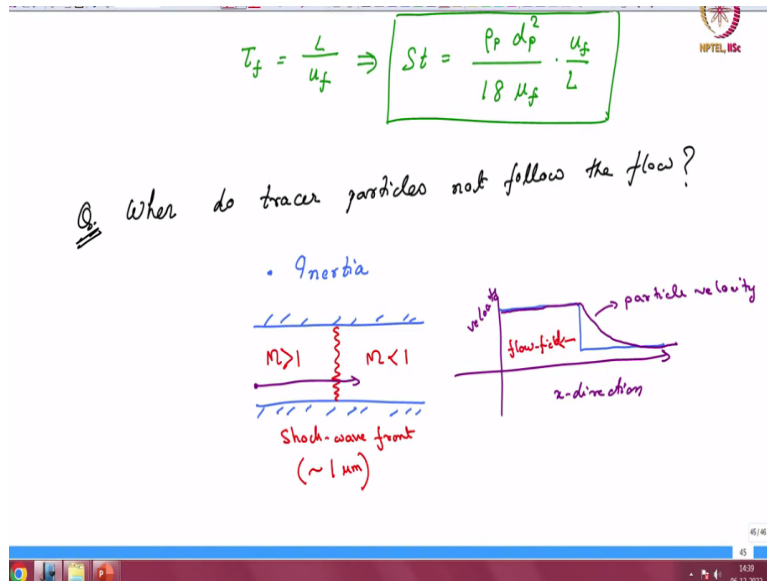 NPTEL, IISc
τ_f = L / u_f ⇒ St = ρ_p d_p² / 18 μ_f · u_f / L
Q. When do tracer particles not follow the flow?
• Inertia
M>1 M<1
Shock-wave front
(~1 μm)
velocity
particle velocity
flow-field
x-direction
45/46
45
14:39